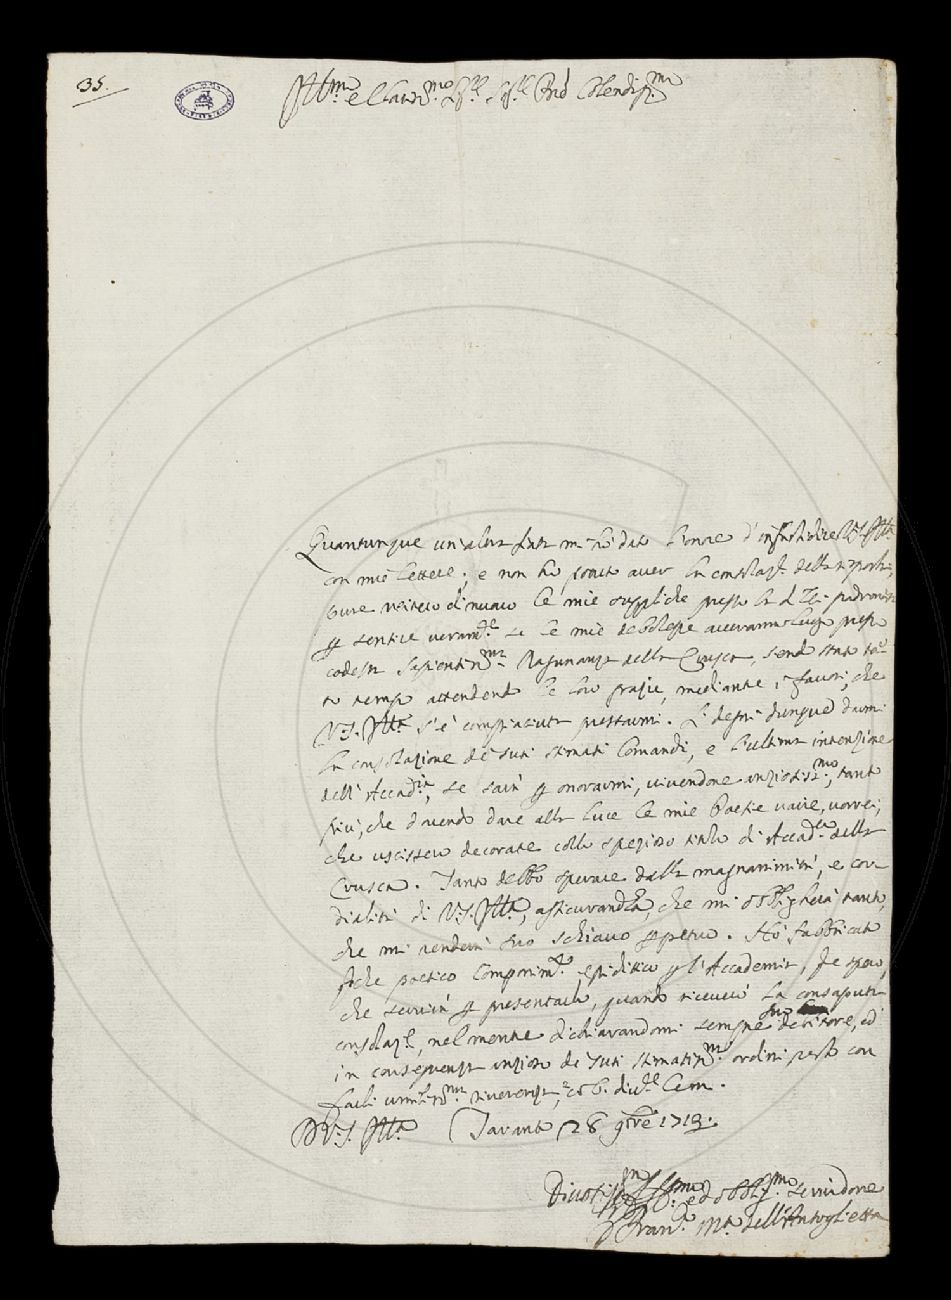 35.
Ill.mo e Sig.r Sig.r Pad. Colendis.mo
Quantunque un'altra m'hà dato l'onore d' V.S. Ill.ma
con mie lettere, e non hò aver la consolaz.e della
di nuovo le mie suppliche presso la di Lei
p sentire veram.te se le mie debolezze averanno luogo presso
codesta Sapientis.ma Ragunanza della Crusca, sendo stato
to tempo attendendo le loro grazie, mediante i favori, che
V.S. Ill.ma s'è compiaciuta prestarmi. Si degni dunque darmi
la consolazione de' suoi stimati Comandi, e l'ultima intenzione
dell'Accad.ia, se sarà p onorarmi, vivendone ansiosis.mo, tanto
più, che dovendo dare alla luce le mie Poesie varie, vorrei,
che uscissero decorate collo specioso titolo di Accad.co della
Crusca. Tanto debbo sperare dalla magnanimità, e cor
dialità di V.S. Ill.ma, assicurandola, che mi obbligherà tanto,
che mi renderà suo schiavo ppetuo. Hò fabbricato
poetico Componim.to, p l'Accademia, che spero,
che servirà p presentarlo, quando riceverò la consaputa
consolaz.e, nel mentre dichiarandomi sempre suo debitore, ed
in conseguenza ansioso de' suoi stimatis.mi ordini resto con
farli umilis.ma riverenza,
D V.S. Ill.ma Taranto 28 9bre 1713.
ed obblig.mo servidore
Fran.co M.a dell'Antoglietta